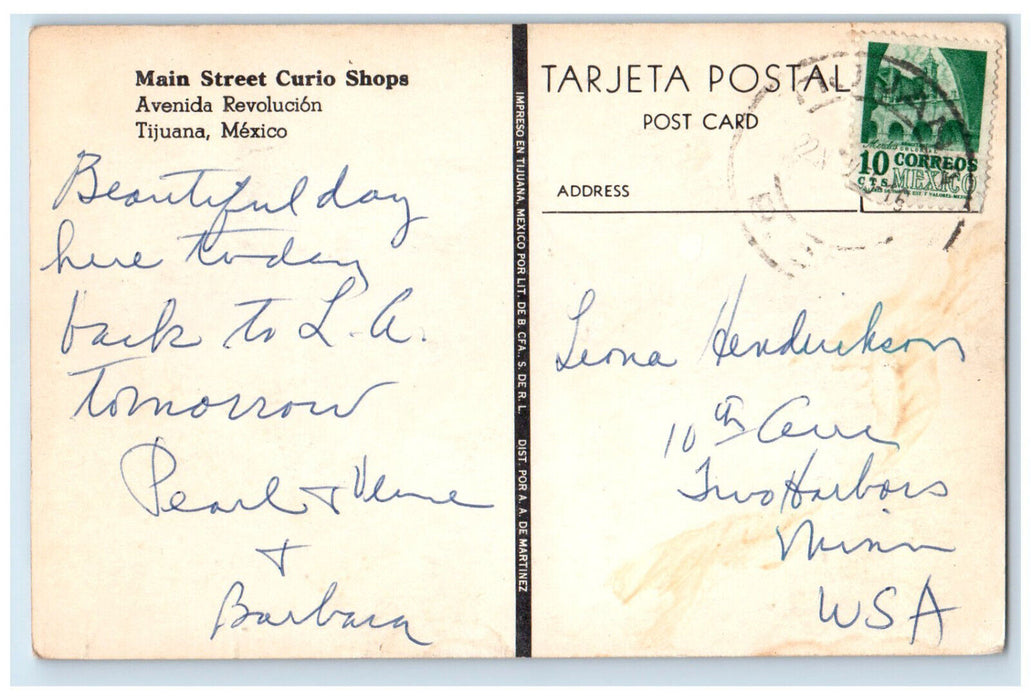 Main Street Curio Shops
Avenida Revolución
Tijuana, México
Beautiful day
here today
back to L.A.
tomorrow
Pearl +
+
Barbara
IMPRESO EN TIJUANA, MEXICO POR LIT. DE B. CFA., S. DE R. L. DIST. POR A. A. DE MARTINEZ
TARJETA POSTAL
POST CARD
10 CORREOS
CTS. MEXICO
ADDRESS
Leona Hendrickson
10th Ave
Two Harbors
Minn
USA